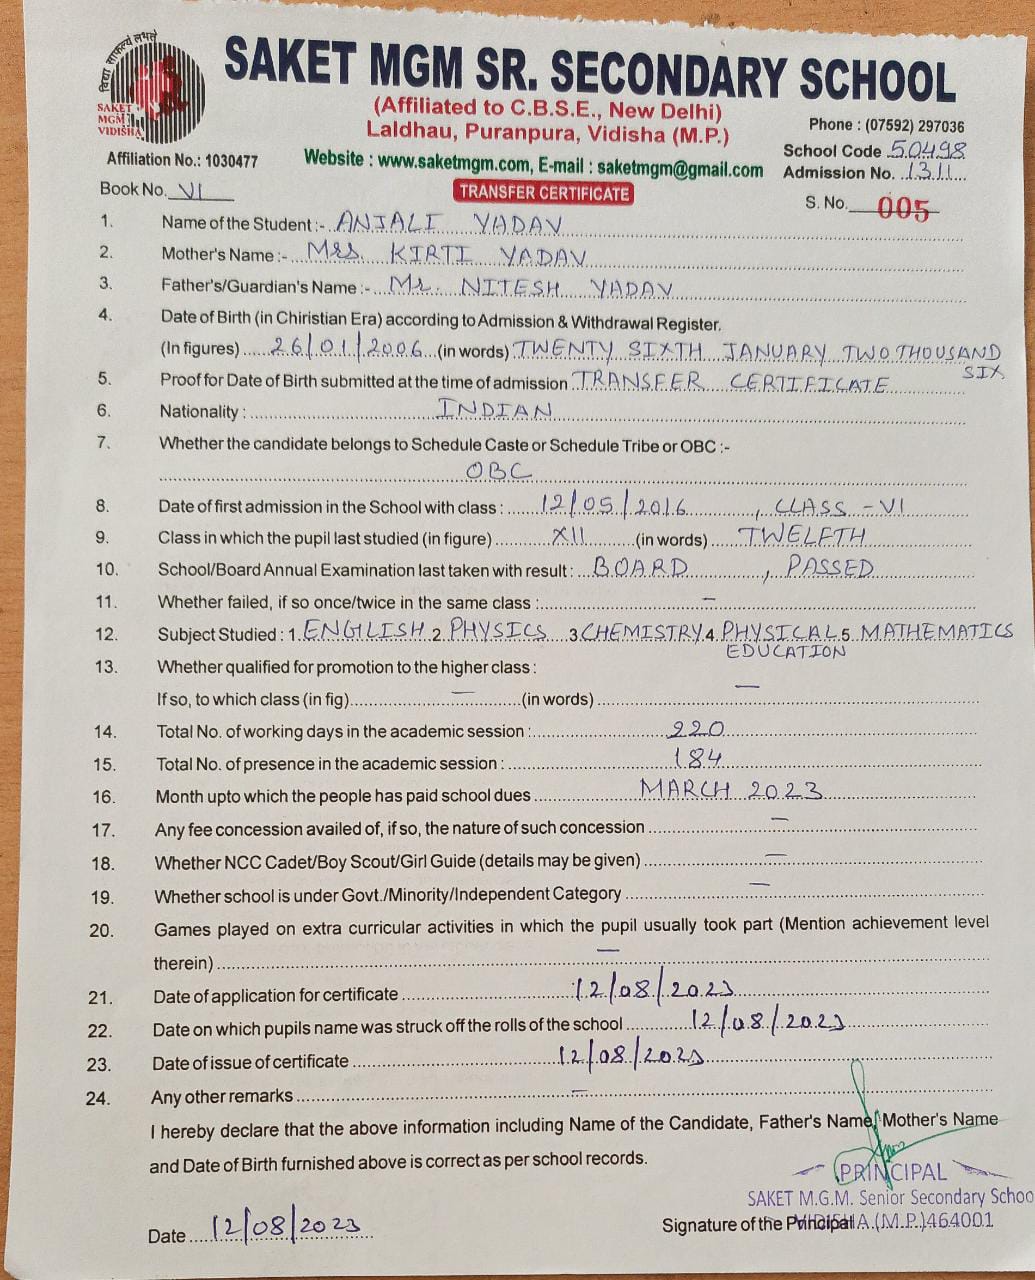 विद्या साफल्यं लभते
SAKET
MGM
VIDISHA
SAKET MGM SR. SECONDARY SCHOOL
(Affiliated to C.B.S.E., New Delhi)
Laldhau, Puranpura, Vidisha (M.P.)
Phone : (07592) 297036
School Code 50498
Affiliation No.: 1030477
Website : www.saketmgm.com, E-mail : saketmgm@gmail.com
Admission No. 1311
Book No. VI
TRANSFER CERTIFICATE
S. No. 005
1. Name of the Student :- ANJALI YADAV
2. Mother's Name :- Mrs KIRTI YADAV
3. Father's/Guardian's Name :- Mr. NITESH YADAV
4. Date of Birth (in Chiristian Era) according to Admission & Withdrawal Register.
(In figures) 26/01/2006 (in words) TWENTY SIXTH JANUARY TWO THOUSAND
SIX
5. Proof for Date of Birth submitted at the time of admission TRANSFER CERTIFICATE
6. Nationality : INDIAN
7. Whether the candidate belongs to Schedule Caste or Schedule Tribe or OBC :-
OBC
8. Date of first admission in the School with class : 12/05/2016, CLASS - VI
9. Class in which the pupil last studied (in figure) XII (in words) TWELFTH
10. School/Board Annual Examination last taken with result : BOARD, PASSED
11. Whether failed, if so once/twice in the same class : –
12. Subject Studied : 1. ENGLISH 2. PHYSICS 3 CHEMISTRY 4. PHYSICAL 5. MATHEMATICS
EDUCATION
13. Whether qualified for promotion to the higher class :
If so, to which class (in fig) – (in words) –
14. Total No. of working days in the academic session : 220
15. Total No. of presence in the academic session : 184
16. Month upto which the people has paid school dues MARCH 2023
17. Any fee concession availed of, if so, the nature of such concession –
18. Whether NCC Cadet/Boy Scout/Girl Guide (details may be given) –
19. Whether school is under Govt./Minority/Independent Category –
20. Games played on extra curricular activities in which the pupil usually took part (Mention achievement level
therein) –
21. Date of application for certificate 12/08/2023
22. Date on which pupils name was struck off the rolls of the school 12/08/2023
23. Date of issue of certificate 12/08/2023
24. Any other remarks –
I hereby declare that the above information including Name of the Candidate, Father's Name, Mother's Name
and Date of Birth furnished above is correct as per school records.
PRINCIPAL
SAKET M.G.M. Senior Secondary Schoo
Date 12/08/2023
Signature of the Principal
VIDISHA.(M.P.)464001